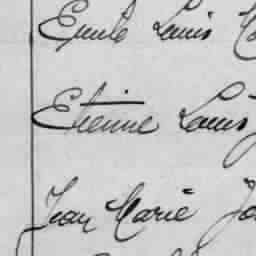 Emile Louis
Etienne Louis
Jean Marie